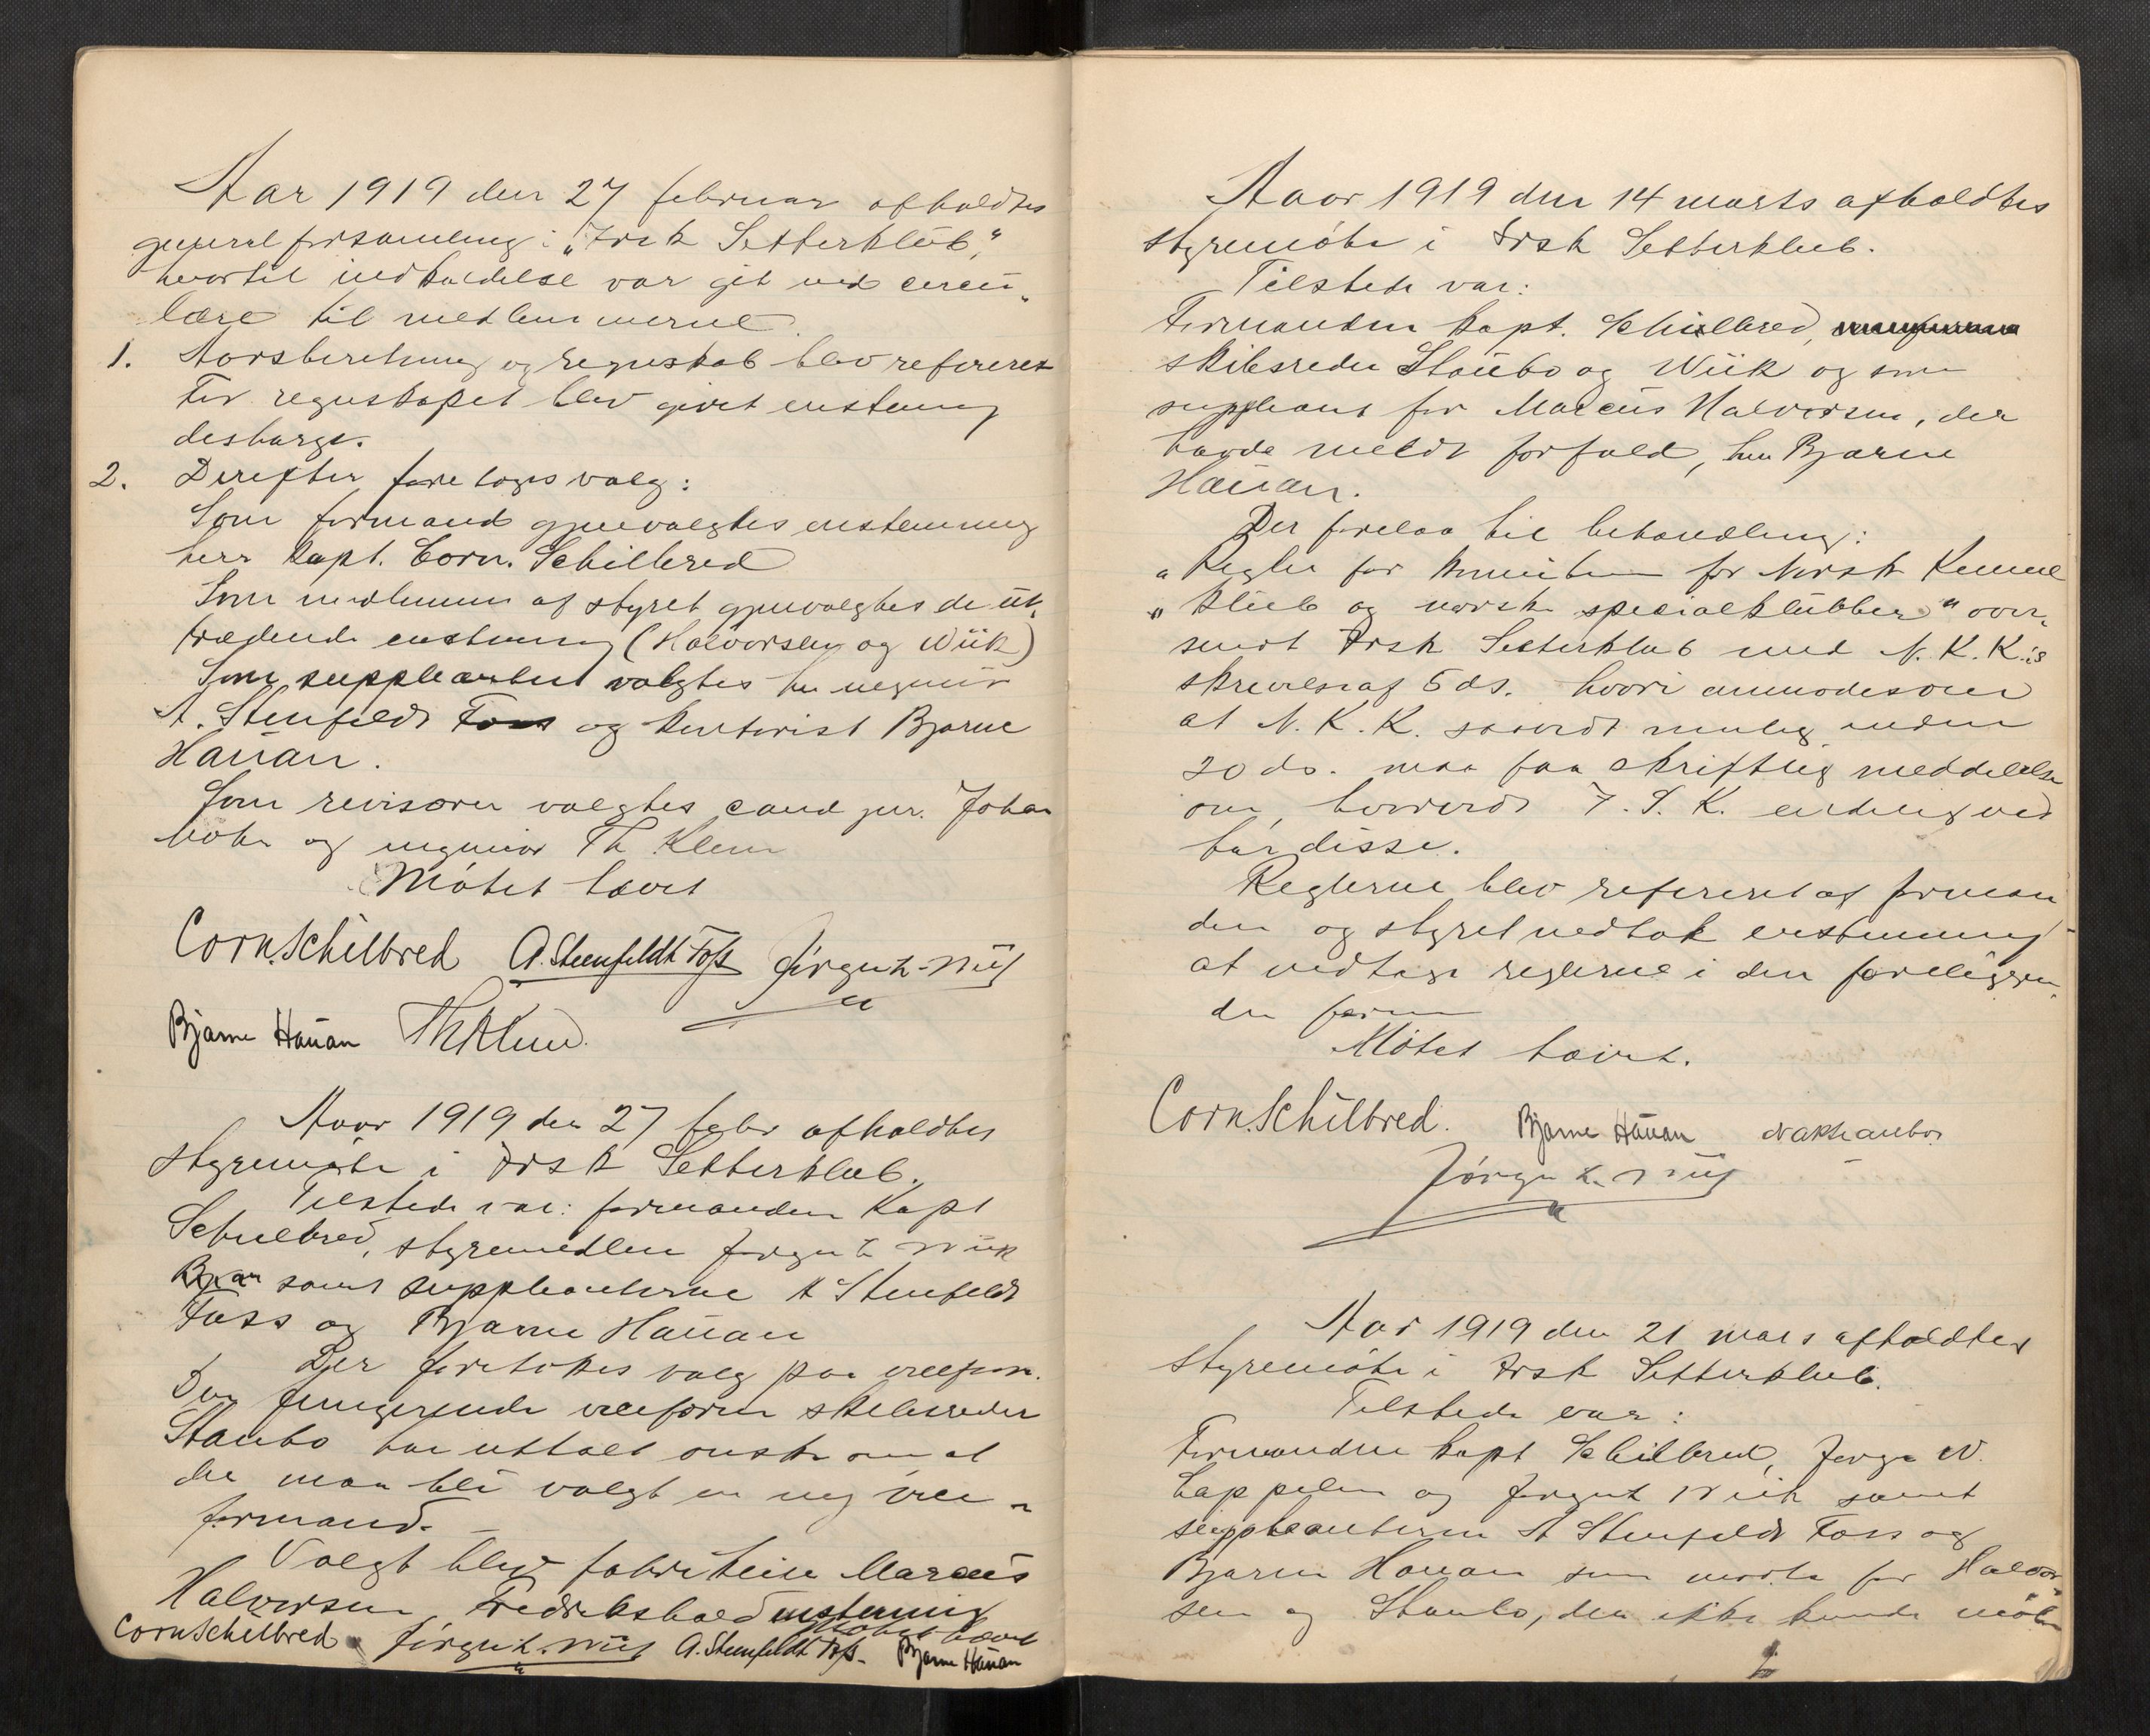 Aar 1919 den 27 februar afholdtes
generalforsamling i "Irsk Setterklub",
hvortil indkaldelse var git ved circu-
lære til medlemmerne.
1. Aarsberetning og regnskab blev referert
For regnskapet blev givet enstemmig
decharge.
2. Derefter foretoges valg:
Som formand gjenvalgtes enstemmig
herr kapt. Corn. Schilbred
Som medlemmer af styret gjenvalgtes de ut-
trædende enstemmig (Halvorsen og Wiik)
Som suppleanter valgtes hr ingeniør
A. Stenfeldt Foss og kontorist Bjarne
Hauan.
Som revisorer valgtes cand jur. Johan
og ingeniør Th Klem
Møtet hævet
Corn. Schilbred A. Steenfeldt Foss Jørgen H. Wiig
Bjarne Hauan Th Klem.
Aaar 1919 den 27 febr afholdtes
styremøte i Irsk Setterklub.
Tilstede var: formanden Kapt
Schilbred, styremedlem Jørgen H Wiik
Bjar samt suppleanterne A Stenfeldt
Foss og Bjarne Hauan
Der foretokes valg paa viceform.
Den fungerende viceform skibsreder
Staubo har uttalt ønske om at
der maa bli valgt en ny vice-
formand.
Valgt blev fabrikeier Marcus
Halvorsen, Fredrikshald enstemmig
Møtet hævet
Corn Schilbred Jørgen H. Wiig A. Steenfeldt Foss. Bjarne Hauan
Aaar 1919 den 14 marts afholdtes
styremøte i Irsk Setterklub.
Tilstede var:
Formanden kapt. Schilbred,
skibsreder Staubo og Wiik og som
suppleant for Marcus Halvorsen, der
havde meldt forfald, herr Bjarne
Hauan.
Der forelaa til behandling:
"Regler for komiteen for Norsk Kennel
"Klub og norske specialklubber" over-
sendt Irsk Setterklub med N.K.K.'s
skrivelse af 5 ds. hvori anmodes om
at N.K.K. saavidt mulig inden
20 ds. maa faa skriftlig meddelelse
om, hvorvidt I.S.K. endelig ved-
tar disse.
Reglerne blev referert af forman
den og styret vedtok enstemmig
at vedtage reglerne i den foreliggen-
de form
Møtet hævet.
Corn. Schilbred. Bjarne Hauan
Jørgen H. Wiig
Aar 1919 den 21 mars afholdtes
styremøte i Irsk Setterklub.
Tilstede var:
Formanden kapt Schilbred, Jørgen W.
Cappelen og Jørgen H Wiik samt
suppleanterne A Stenfeldt Foss og
Bjarne Hauan som møtte for Halvor
sen og Staubo, der ikke kunde møte